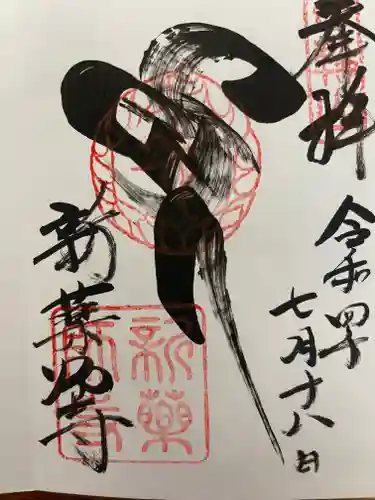 奉拝
令和四年
七月十八日
新薬師寺
新薬師寺